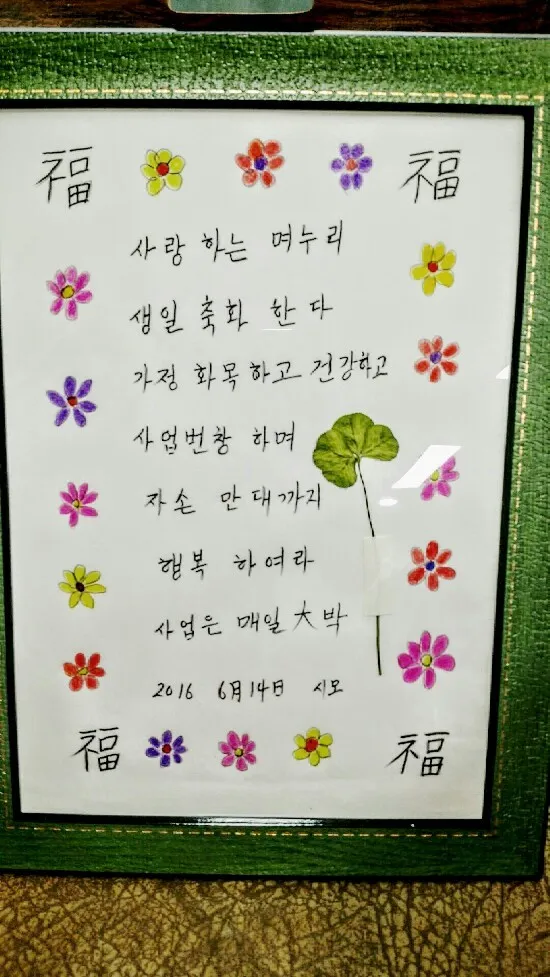 福 福
사랑 하는 며누리
생일 축화 한다
가정 화목하고 건강하고
사업번창 하며
자손 만대까지
행복 하여라
사업은 매일 大박
2016 6月14日 시모
福 福